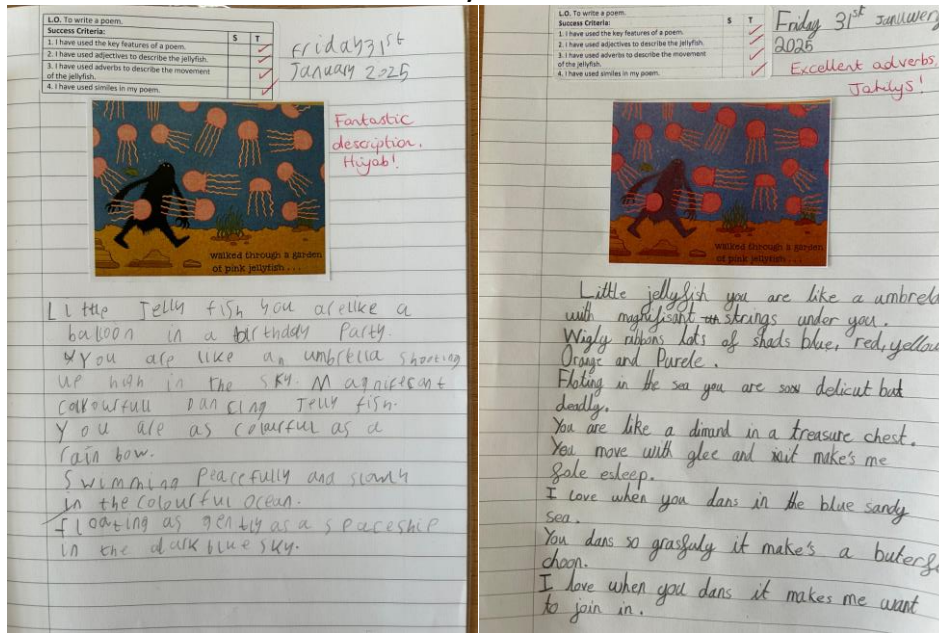 L.O. To write a poem.
Success Criteria:
S T
1. I have used the key features of a poem.
2. I have used adjectives to describe the jellyfish.
3. I have used adverbs to describe the movement
of the jellyfish.
4. I have used similes in my poem.
Friday 31st
January 2025
Fantastic
description,
Hiyab!
walked through a garden
of pink jellyfish...
Little Jelly fish you are like a
balloon in a birthday Party.
You are like an umbrella shooting
up high in the sky. Magnifesant
colourfull Dancing Jelly fish.
You are as colourful as a
rain bow.
Swimming Peacefully and slowly
in the colourful ocean.
floating as gently as a spaceship
in the dark blue sky.
L.O. To write a poem.
Success Criteria:
S T
1. I have used the key features of a poem.
2. I have used adjectives to describe the jellyfish.
3. I have used adverbs to describe the movement
of the jellyfish.
4. I have used similes in my poem.
Friday 31st
2025
Excellent adverbs,
walked through a garden
of pink jellyfish...
Little jellyfish you are like a umbrela
with magnifisant strings under you.
Wigly ribbons lots of shads blue, red, yellow
Orange and Purele.
Floting in the sea you are soow delicut but
deadly.
You are like a dimand in a treasure chest.
You move with glee and it make's me
fale esleep.
I love when you dans in the blue sandy
sea.
You dans so grasfuly it make's a buterf
choon.
I love when you dans it makes me want
to join in.